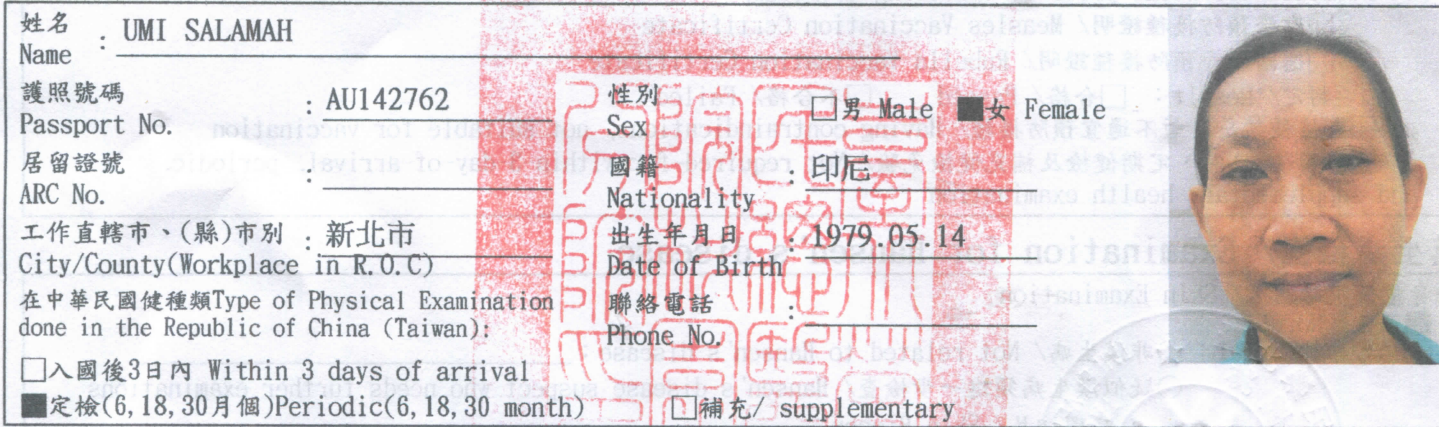 姓名
Name : UMI SALAMAH
護照號碼
Passport No. : AU142762
居留證號
ARC No. :
工作直轄市、(縣)市別 : 新北市
City/County(Workplace in R.O.C)
在中華民國健種類Type of Physical Examination
done in the Republic of China (Taiwan):
□入國後3日內 Within 3 days of arrival
■定檢(6,18,30月個)Periodic(6,18,30 month) □補充/ supplementary
性別
Sex : □男 Male ■女 Female
國籍
Nationality : 印尼
出生年月日
Date of Birth : 1979.05.14
聯絡電話
Phone No. :